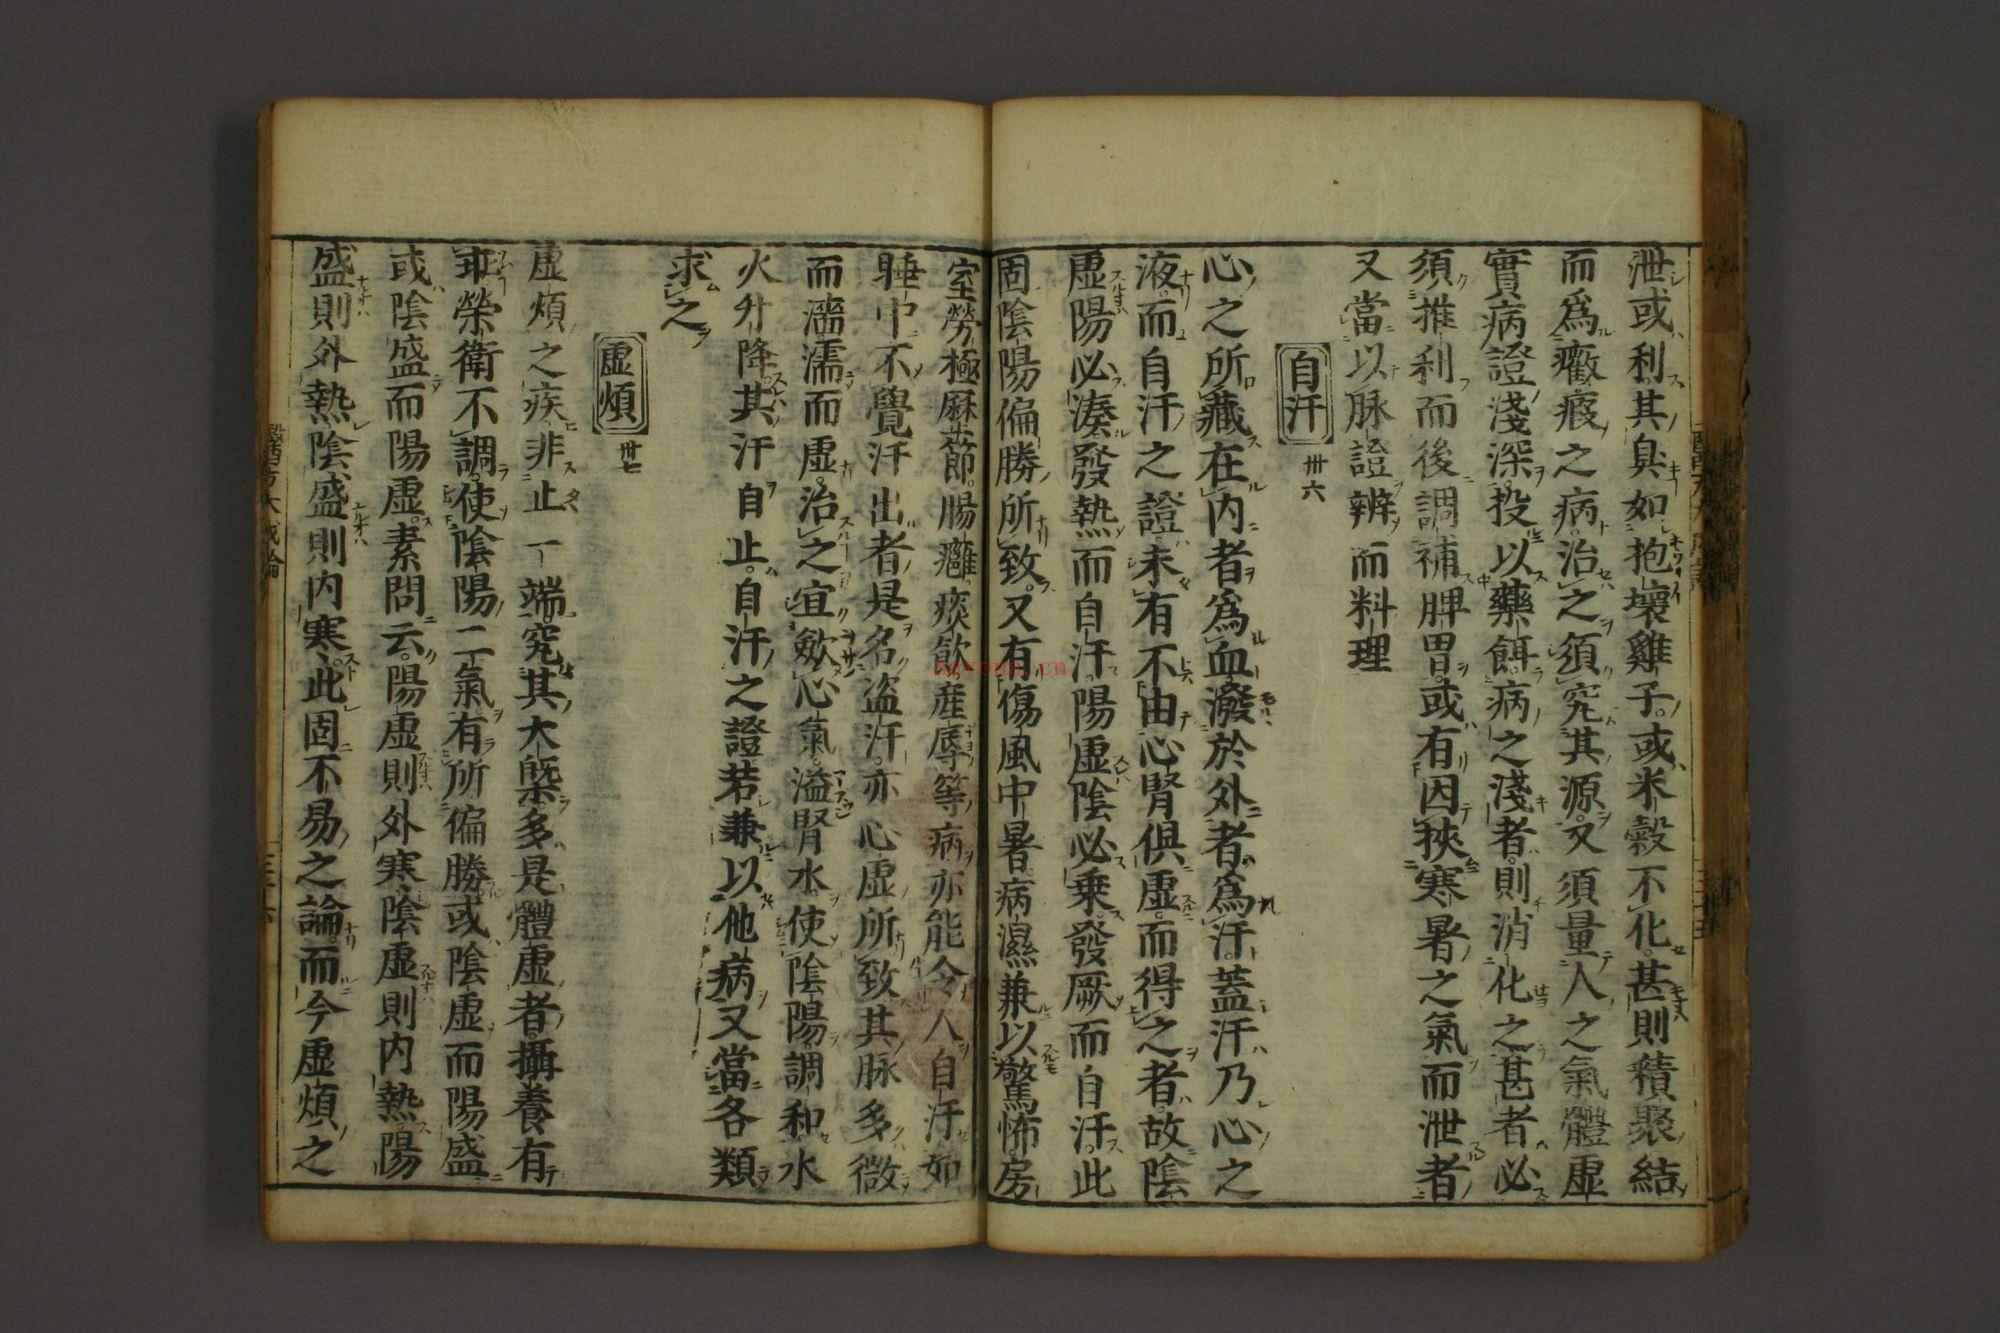 泄或利其臭如抱壞雞子或米穀不化甚則積聚結
而爲癥瘕之病治之須究其源又須量人之氣體虛
實病證淺深投以藥餌病之淺者則消化之甚者必
須推利而後調補脾胃或有因挾寒暑之氣而泄者
又當以脉證辨而料理
自汗 卅六
心之所藏在内者爲血潑於外者爲汗蓋汗乃心之
液而自汗之證未有不由心腎俱虛而得之者故陰
虛陽必湊發熱而自汗陽虛陰必乗發厥而自汗此
固陰陽偏勝所致又有傷風中暑病濕兼以驚怖房
室勞極麻莭腸癰痰飲産辱等病亦能令人自汗如
睡中不覺汗出者是名盗汗亦心虛所致其脉多微
而濇濡而虛治之宜歛心氣溢腎水使陰陽調和水
火升降其汗自止自汗之證若兼以他病又當各類
求之
虛煩 卅七
虛煩之疾非止一端究其大槩多是體虛者攝養有
乖榮衛不調使陰陽二氣有所偏勝或陰虛而陽盛
或陰盛而陽虛素問云陽虛則外寒陰虛則内熱陽
盛則外熱陰盛則内寒此固不易之論而今虛煩之